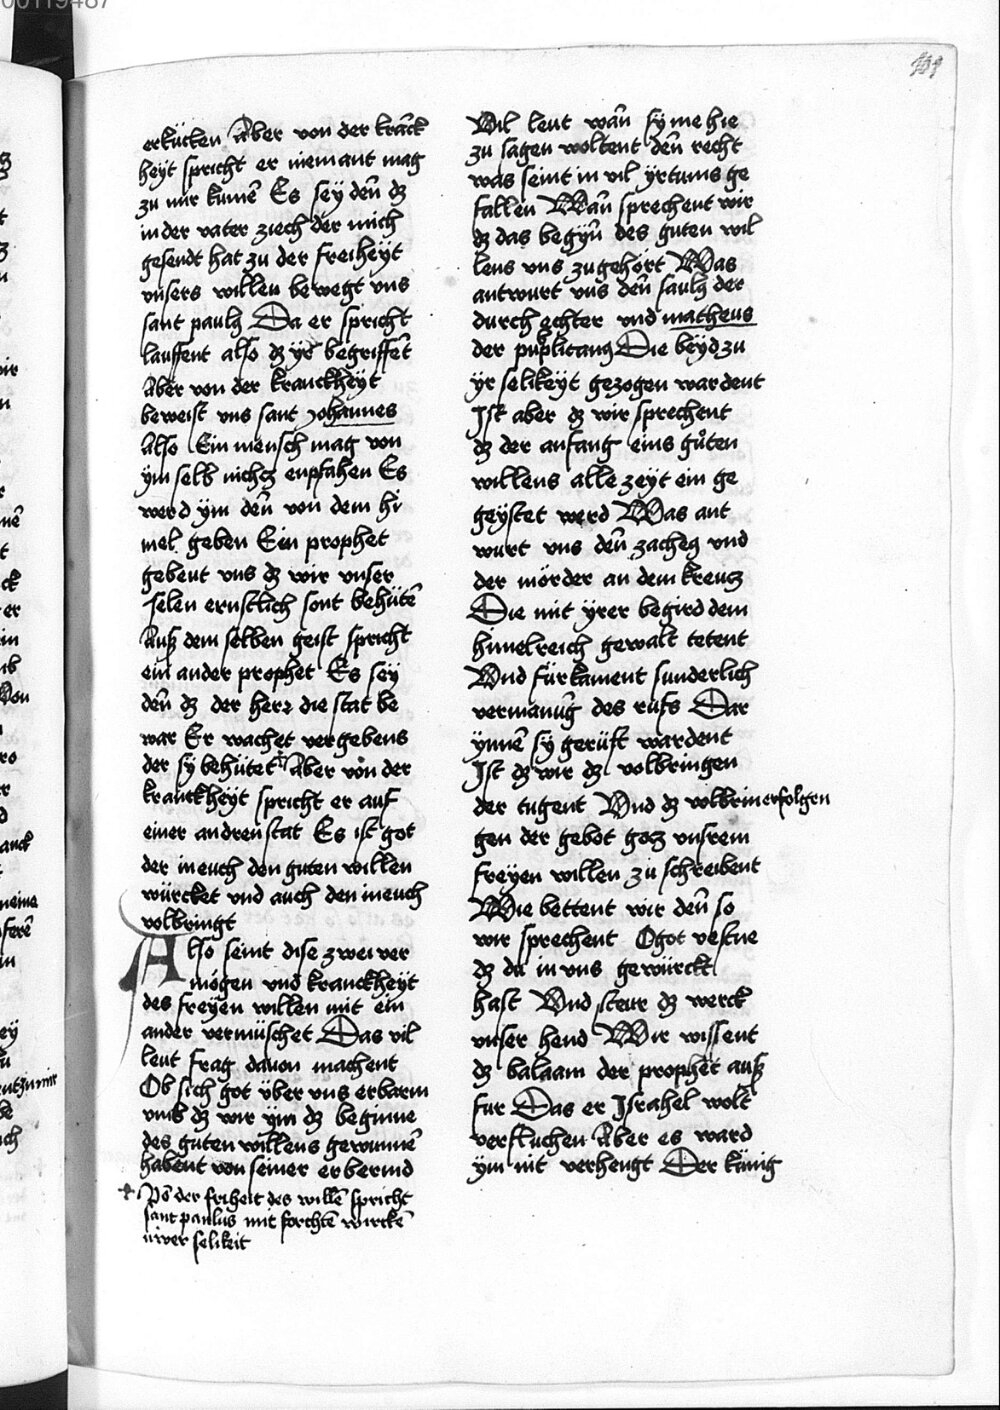 erkücken Aber von der kranck
heyt spricht er niemant mag
zu mir kumē Es sey deñ dz
in der vater ziech der mich
gesendt hat zu der freiheyt
vnsers willen bewegt vns
sant pauls Da er spricht
lauffent also dz yr begriffēt
Aber von der kranckheyt
beweist vns sant Johannes
Also Ein mensch mag von
ym selb nichs enpfahen Es
werd ym deñ von dem hi
mel geben Ein prophet
gebeut vns dz wir vnser
selen ernstlich sont behütē
Ausz dem selben geist spricht
ein ander prophet Es sey
deñ dz der herr die stat be
war Er wachet vergebens
der sy behütet Aber von der
kranckheyt spricht er auf
einer andren stat Es ist got
der in euch den guten willen
würcket vnd auch den in euch
volbringt
Also seint dise zwei ver
mögen vnd kranckheyt
des freyen willen mit ein
ander vermüschet Das vil
leut frag dauon machent
Ob sich got über vns erbarm
vmb dz wir ym dz beginne
des guten willens gewunnē
habent von seiner erbermd
Vō der friheit des willē spricht
sant paulus mit forchtē wirckē
üwer selikeit
Vil leut wañ sy me hie
zu sagen woltent deñ recht
was seint in vil yrtums ge
fallen Wañ sprechent wir
dz das begyñ des guten wil
lens vns zugehört Was
antwurt vns deñ sauls der
durch echter vnd matheus
der puplicans Die beyd zu
yr selikeyt gezogen wardent
Ist aber dz wir sprechent
dz der anfang eins gůten
willens alle zeyt ein ge
geystet werd Was ant
wurt vns deñ zacheus vnd
der mörder an dem kreuz
Die mit yrer begird dem
himelreich gewalt tetent
Vnd fürkament sunderlich
vermanūg des rufs Dar
ynnē sy gerüft wardent
Ist dz wir dz volbringen
der tugent Vnd dz volbrin erfolgen
gen der gebot gotz vnsrem
freyen willen zu schreibent
Wie bettent wir deñ so
wir sprechent O got vestne
dz du in vns gewürckt
hast Vnd steur dz werck
vnser hend Wir wissent
dz balaam der prophet ausz
fur Das er Israhel wolt
verfluchen Aber es ward
ym nit verhengt Der künig